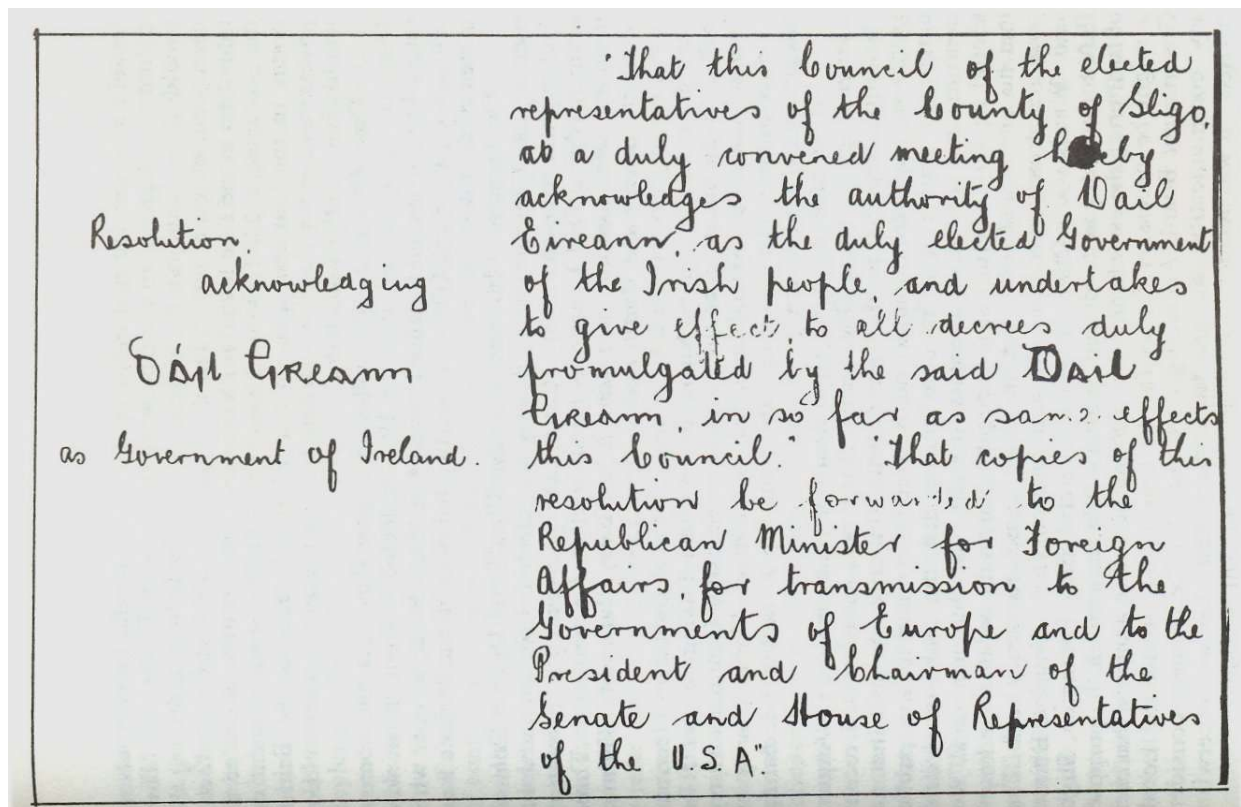 Resolution.
acknowledging
Dáil Eireann
as Government of Ireland.
"That this Council of the elected
representatives of the County of Sligo,
at a duly convened meeting hereby
acknowledges the authority of Dail
Eireann, as the duly elected Government
of the Irish people, and undertakes
to give effect, to all decrees duly
promulgated by the said Dail
Eireann, in so far as same effects
this Council." "That copies of this
resolution be forwarded to the
Republican Minister for Foreign
Affairs, for transmission to the
Governments of Europe and to the
President and Chairman of the
Senate and House of Representatives
of the U.S.A".